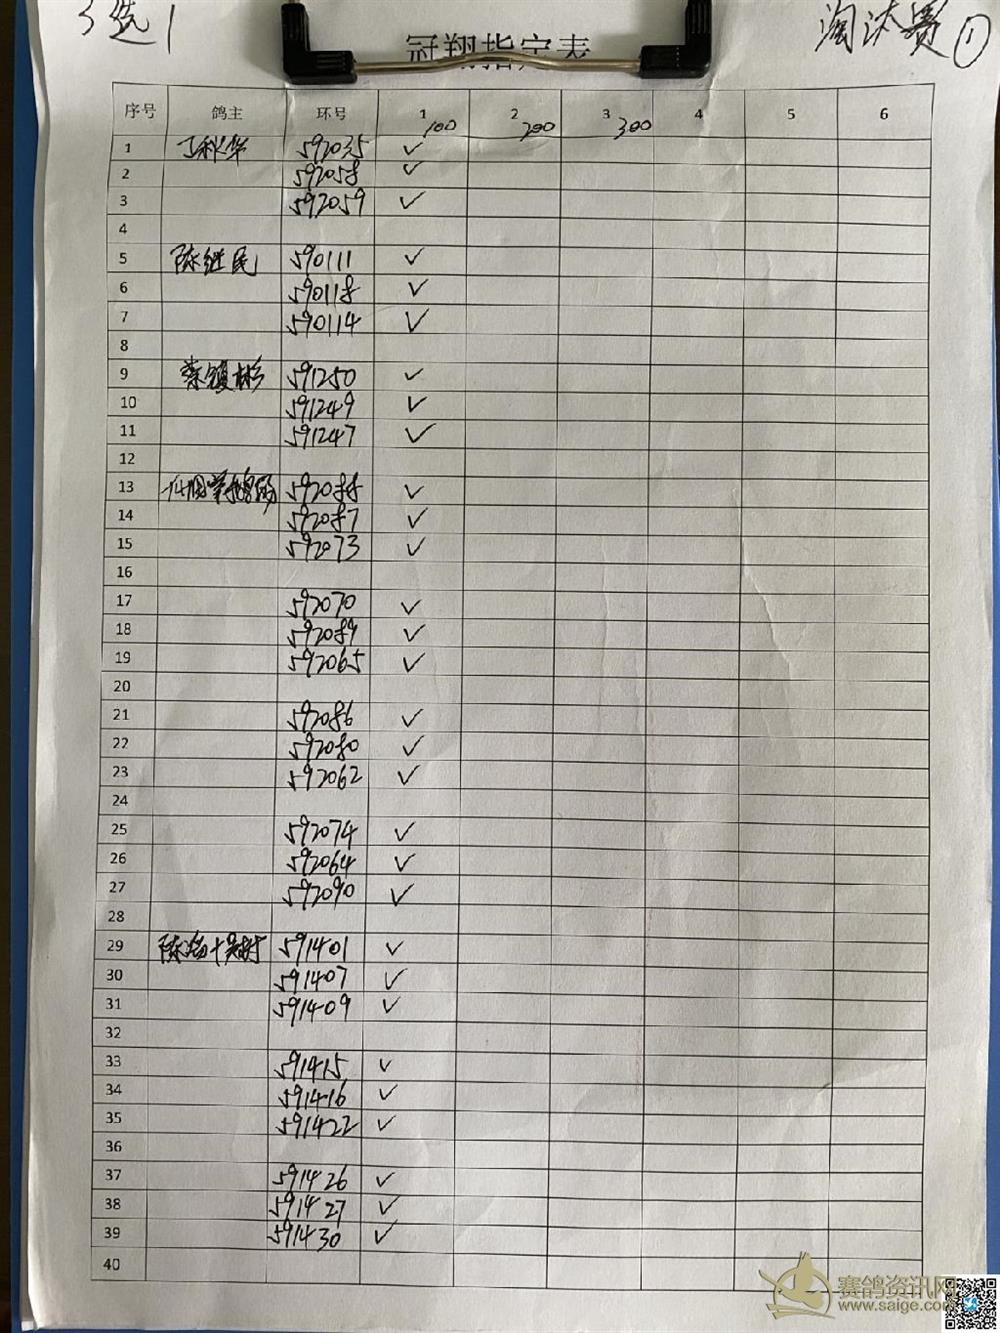 3选1
淘汰赛①
冠翔指定表
序号 鸽主 环号 1 2 3 4 5 6
100 200 300
1 丁秋华 592035 ✓
2 592058 ✓
3 592059 ✓
4
5 陈继民 590111 ✓
6 590118 ✓
7 590114 ✓
8
9 591250 ✓
10 591249 ✓
11 591247 ✓
12
13 592088 ✓
14 592087 ✓
15 592073 ✓
16
17 592070 ✓
18 592089 ✓
19 592065 ✓
20
21 592086 ✓
22 592080 ✓
23 592062 ✓
24
25 592074 ✓
26 592064 ✓
27 592090 ✓
28
29 591401 ✓
30 591407 ✓
31 591409 ✓
32
33 591415 ✓
34 591416 ✓
35 591422 ✓
36
37 591426 ✓
38 591427 ✓
39 591430 ✓
40
赛鸽资讯网
www.saige.com